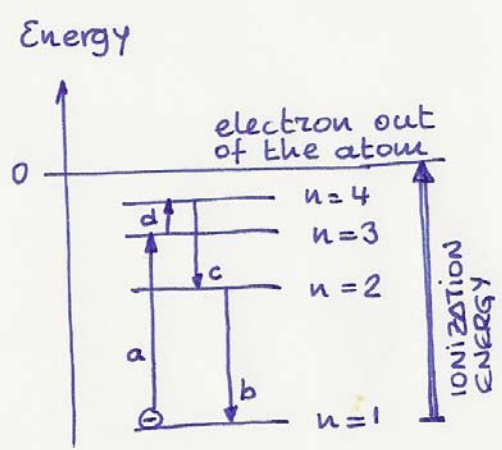 Energy
electron out
of the atom
0
n=4
d
n=3
c
n=2
a
b
n=1
IONIZATION
ENERGY